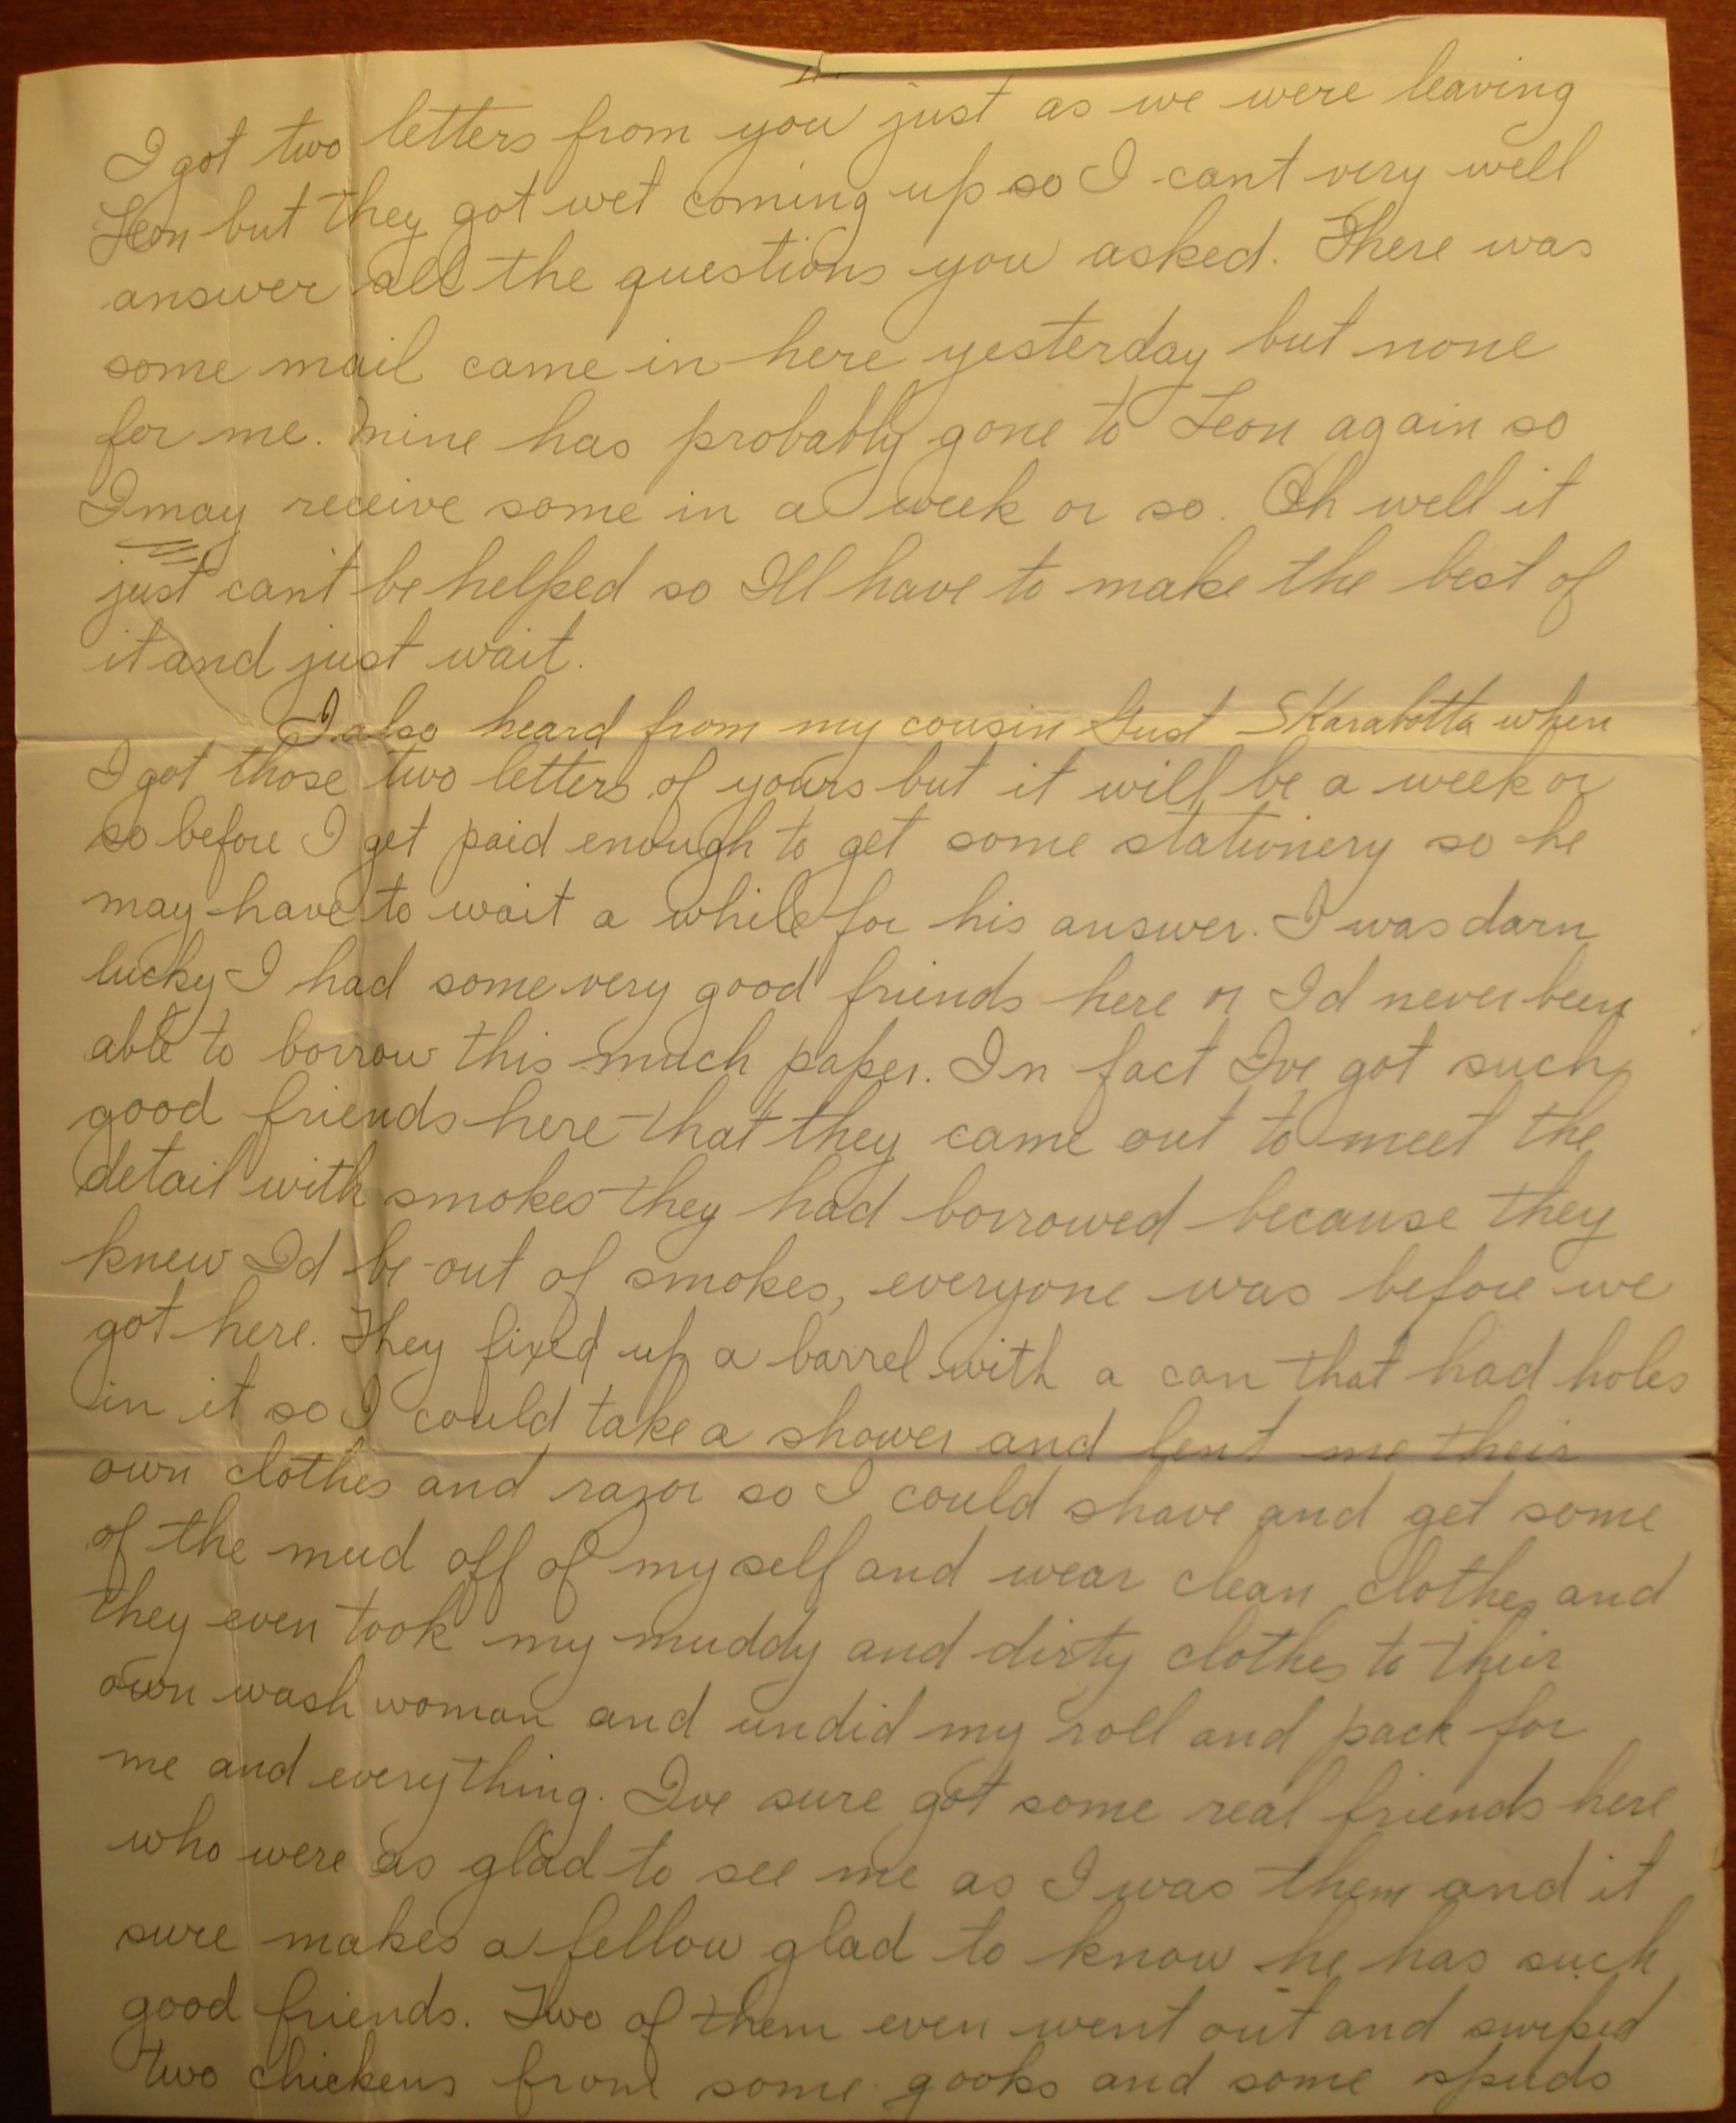 I got two letters from you just as we were leaving
Leon but they got wet coming up so I cant very well
answer all the questions you asked. There was
some mail came in here yesterday but none
for me. Mine has probably gone to Leon again so
I may receive some in a week or so. Oh well it
just can't be helped so Ill have to make the best of
it and just wait.
I also heard from my cousin Gust Skarabotta when
I got those two letters of yours but it will be a week or
so before I get paid enough to get some stationery so he
may have to wait a while for his answer. I was darn
lucky I had some very good friends here or Id never been
able to borrow this much paper. In fact Ive got such
good friends here that they came out to meet the
detail with smokes they had borrowed because they
knew Id be out of smokes, everyone was before we
got here. They fixed up a barrel with a can that had holes
in it so I could take a shower and lent me their
own clothes and razor so I could shave and get some
of the mud off of myself and wear clean clothes and
they even took my muddy and dirty clothes to their
own wash woman and undid my roll and pack for
me and everything. Ive sure got some real friends here
who were as glad to see me as I was them and it
sure makes a fellow glad to know he has such
good friends. Two of them even went out and swiped
two chickens from some gooks and some spuds